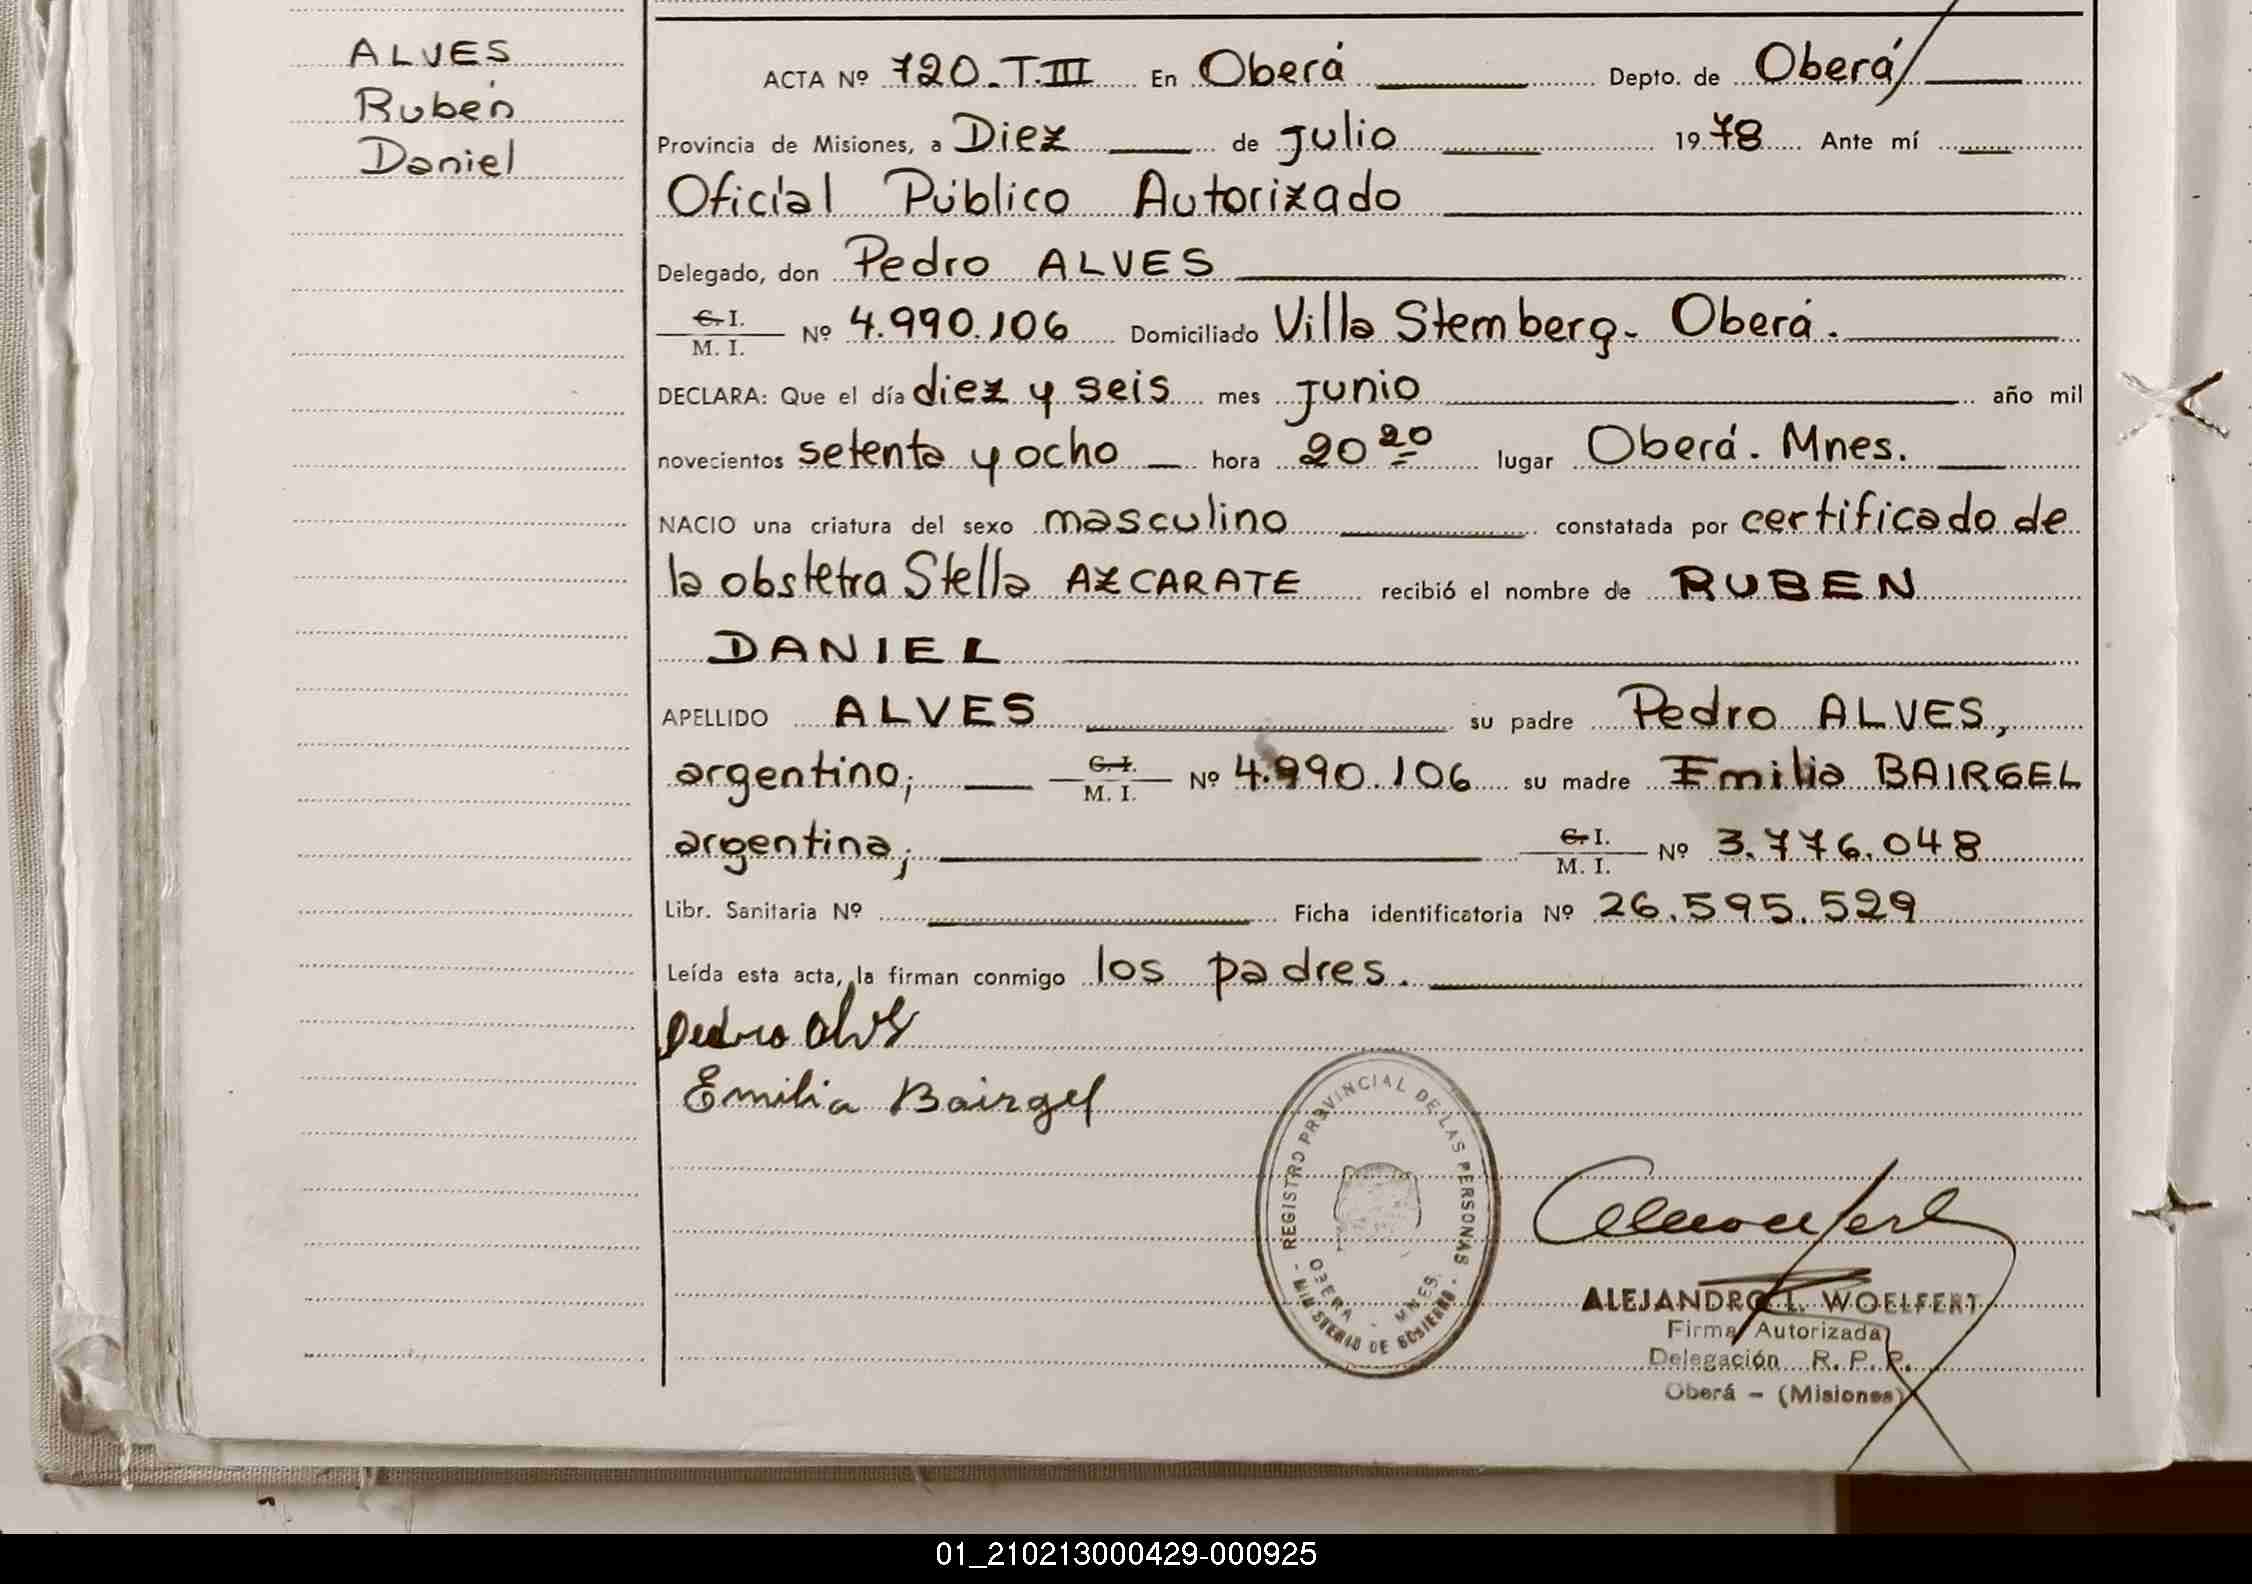 ALVES
Rubén
Daniel
ACTA Nº 720.T.III En Oberá Depto. de Oberá
Provincia de Misiones, a Diez de julio 1978 Ante mí
Oficial Público Autorizado
Delegado, don Pedro ALVES
C. I.
M. I.
Nº 4.990.106 Domiciliado Villa Stemberg- Oberá.
DECLARA: Que el día diez y seis mes junio año mil
novecientos setenta y ocho hora 20 20 lugar Oberá. Mnes.
NACIO una criatura del sexo masculino constatada por certificado de
la obstetra Stella AZCARATE recibió el nombre de RUBEN
DANIEL
APELLIDO ALVES su padre Pedro ALVES,
argentino; C. I. M. I. Nº 4.990.106 su madre Emilia BAIRGEL
argentina; C. I. M. I. Nº 3.776.048
Libr. Sanitaria Nº Ficha identificatoria Nº 26.595.529
Leída esta acta, la firman conmigo los padres.
Pedro Alves
Emilia Bairgel
REGISTRO PROVINCIAL DE LAS PERSONAS
OBERA - MNES.
- MINISTERIO DE GOBIERNO -
ALEJANDRO L. WOELFERT
Firma Autorizada
Delegación R. P. P.
Oberá - (Misiones)
01_210213000429-000925